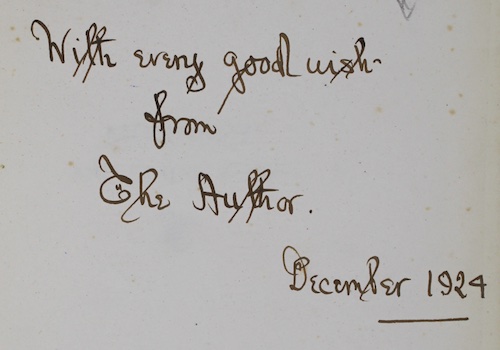 With every good wish
from
The Author.
December 1924